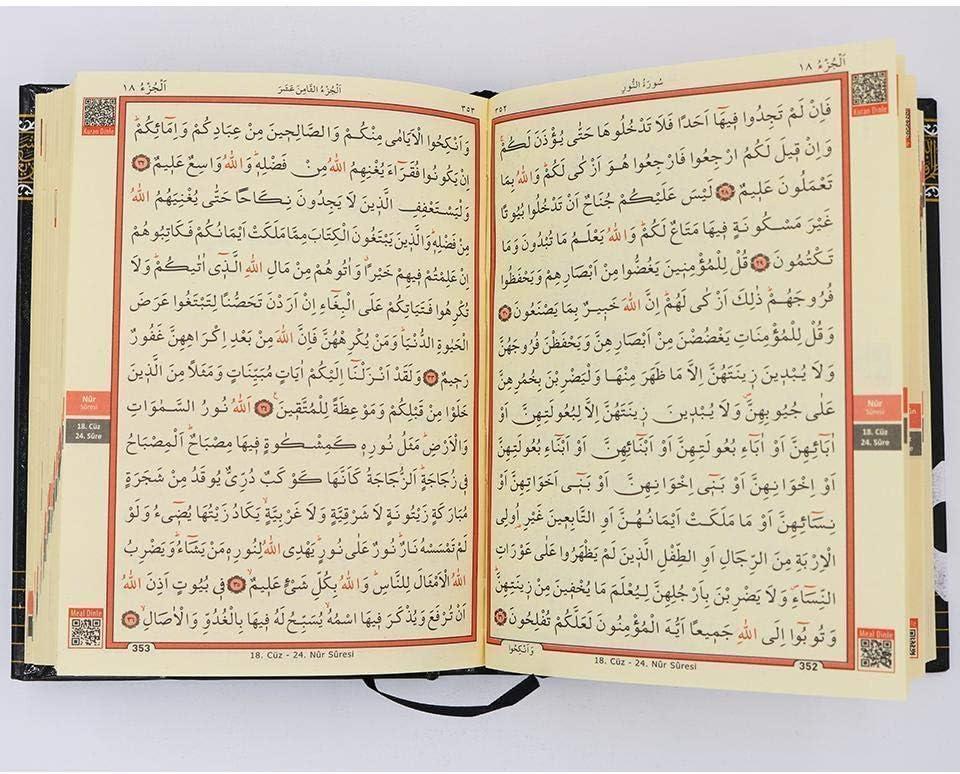 اَلْجُزْءُ ١٨
سُورَةُ النُّورِ
٣٥٢
Kuran Dinle
فَاِنْ لَمْ تَجِدُوا فٖيهَٓا اَحَدًا فَلَا تَدْخُلُوهَا حَتّٰى يُؤْذَنَ لَكُمْۚ
وَاِنْ قٖيلَ لَكُمُ ارْجِعُوا فَارْجِعُوا هُوَ اَزْكٰى لَكُمْؕ وَاللّٰهُ بِمَا
تَعْمَلُونَ عَلٖيمٌ ﴿٢٨﴾ لَيْسَ عَلَيْكُمْ جُنَاحٌ اَنْ تَدْخُلُوا بُيُوتًا
غَيْرَ مَسْكُونَةٍ فٖيهَا مَتَاعٌ لَكُمْؕ وَاللّٰهُ يَعْلَمُ مَا تُبْدُونَ وَمَا
تَكْتُمُونَ ﴿٢٩﴾ قُلْ لِلْمُؤْمِنٖينَ يَغُضُّوا مِنْ اَبْصَارِهِمْ وَيَحْفَظُوا
فُرُوجَهُمْؕ ذٰلِكَ اَزْكٰى لَهُمْؕ اِنَّ اللّٰهَ خَبٖيرٌ بِمَا يَصْنَعُونَ ﴿٣٠﴾
وَقُلْ لِلْمُؤْمِنَاتِ يَغْضُضْنَ مِنْ اَبْصَارِهِنَّ وَيَحْفَظْنَ فُرُوجَهُنَّ
وَلَا يُبْدٖينَ زٖينَتَهُنَّ اِلَّا مَا ظَهَرَ مِنْهَا وَلْيَضْرِبْنَ بِخُمُرِهِنَّ
عَلٰى جُيُوبِهِنَّࣕ وَلَا يُبْدٖينَ زٖينَتَهُنَّ اِلَّا لِبُعُولَتِهِنَّ اَوْ
اٰبَٓائِهِنَّ اَوْ اٰبَٓاءِ بُعُولَتِهِنَّ اَوْ اَبْنَٓائِهِنَّ اَوْ اَبْنَٓاءِ بُعُولَتِهِنَّ
اَوْ اِخْوَانِهِنَّ اَوْ بَنٖٓى اِخْوَانِهِنَّ اَوْ بَنٖٓى اَخَوَاتِهِنَّ اَوْ
نِسَٓائِهِنَّ اَوْ مَا مَلَكَتْ اَيْمَانُهُنَّ اَوِ التَّابِعٖينَ غَيْرِ اُولِى
الْاِرْبَةِ مِنَ الرِّجَالِ اَوِ الطِّفْلِ الَّذٖينَ لَمْ يَظْهَرُوا عَلٰى عَوْرَاتِ
النِّسَٓاءِࣕ وَلَا يَضْرِبْنَ بِاَرْجُلِهِنَّ لِيُعْلَمَ مَا يُخْفٖينَ مِنْ زٖينَتِهِنَّؕ
وَتُوبُٓوا اِلَى اللّٰهِ جَمٖيعًا اَيُّهَ الْمُؤْمِنُونَ لَعَلَّكُمْ تُفْلِحُونَ ﴿٣١﴾
وَاَنْكِحُوا
Nûr
Sûresi
18. Cüz
24. Sûre
Meal Dinle
18. Cüz - 24. Nûr Sûresi
352
اَلْجُزْءُ ١٨
اَلْجُزْءُ الثَّامِنَ عَشَرَ
٣٥٣
Kuran Dinle
وَاَنْكِحُوا الْاَيَامٰى مِنْكُمْ وَالصَّالِحٖينَ مِنْ عِبَادِكُمْ وَاِمَٓائِكُمْؕ
اِنْ يَكُونُوا فُقَرَٓاءَ يُغْنِهِمُ اللّٰهُ مِنْ فَضْلِهٖؕ وَاللّٰهُ وَاسِعٌ عَلٖيمٌ ﴿٣٢﴾
وَلْيَسْتَعْفِفِ الَّذٖينَ لَا يَجِدُونَ نِكَاحًا حَتّٰى يُغْنِيَهُمُ اللّٰهُ
مِنْ فَضْلِهٖؕ وَالَّذٖينَ يَبْتَغُونَ الْكِتَابَ مِمَّا مَلَكَتْ اَيْمَانُكُمْ فَكَاتِبُوهُمْ
اِنْ عَلِمْتُمْ فٖيهِمْ خَيْرًاࣗ وَاٰتُوهُمْ مِنْ مَالِ اللّٰهِ الَّذٖٓى اٰتٰيكُمْؕ وَلَا
تُكْرِهُوا فَتَيَاتِكُمْ عَلَى الْبِغَٓاءِ اِنْ اَرَدْنَ تَحَصُّنًا لِتَبْتَغُوا عَرَضَ
الْحَيٰوةِ الدُّنْيَاؕ وَمَنْ يُكْرِهْهُنَّ فَاِنَّ اللّٰهَ مِنْ بَعْدِ اِكْرَاهِهِنَّ غَفُورٌ
رَحٖيمٌ ﴿٣٣﴾ وَلَقَدْ اَنْزَلْنَٓا اِلَيْكُمْ اٰيَاتٍ مُبَيِّنَاتٍ وَمَثَلًا مِنَ الَّذٖينَ
خَلَوْا مِنْ قَبْلِكُمْ وَمَوْعِظَةً لِلْمُتَّقٖينَࣖ ﴿٣٤﴾ اَللّٰهُ نُورُ السَّمٰوَاتِ
وَالْاَرْضِؕ مَثَلُ نُورِهٖ كَمِشْكٰوةٍ فٖيهَا مِصْبَاحٌؕ اَلْمِصْبَاحُ
فٖى زُجَاجَةٍؕ اَلزُّجَاجَةُ كَاَنَّهَا كَوْكَبٌ دُرِّىٌّ يُوقَدُ مِنْ شَجَرَةٍ
مُبَارَكَةٍ زَيْتُونَةٍ لَا شَرْقِيَّةٍ وَلَا غَرْبِيَّةٍۙ يَكَادُ زَيْتُهَا يُضٖٓىءُ وَلَوْ
لَمْ تَمْسَسْهُ نَارٌؕ نُورٌ عَلٰى نُورٍؕ يَهْدِى اللّٰهُ لِنُورِهٖ مَنْ يَشَٓاءُؕ وَيَضْرِبُ
اللّٰهُ الْاَمْثَالَ لِلنَّاسِؕ وَاللّٰهُ بِكُلِّ شَىْءٍ عَلٖيمٌۙ ﴿٣٥﴾ فٖى بُيُوتٍ اَذِنَ اللّٰهُ
اَنْ تُرْفَعَ وَيُذْكَرَ فٖيهَا اسْمُهُۙ يُسَبِّحُ لَهُ فٖيهَا بِالْغُدُوِّ وَالْاٰصَالِۙ ﴿٣٦﴾
Nûr
Sûresi
18. Cüz
24. Sûre
Meal Dinle
353
18. Cüz - 24. Nûr Sûresi